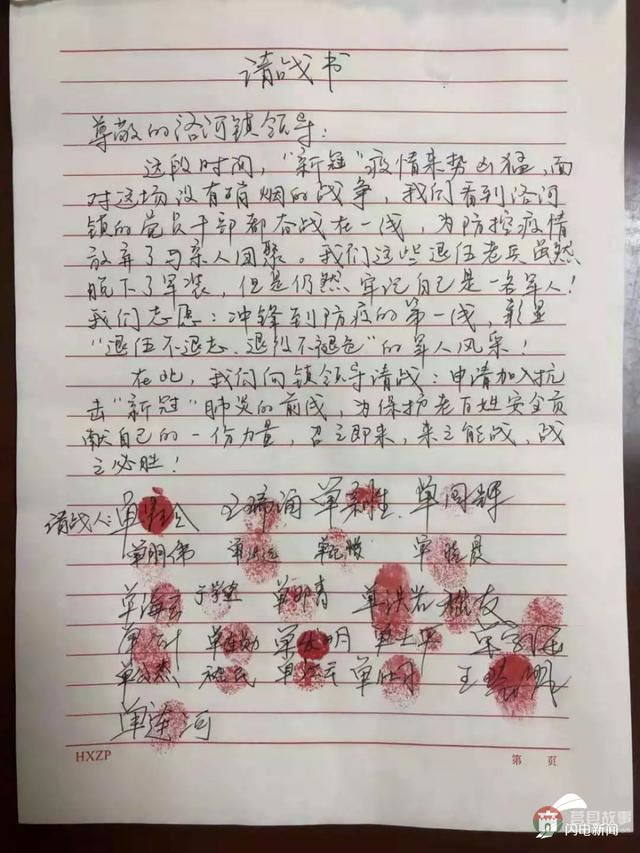 请战书
尊敬的洛河镇领导：
这段时间，“新冠”疫情来势凶猛，面
对这场没有硝烟的战争，我们看到洛河
镇的党员干部都奋战在一线，为防控疫情
放弃了与亲人团聚。我们这些退伍老兵虽然
脱下了军装，但是仍然牢记自己是一名军人！
我们志愿：冲锋到防疫的第一线，彰显
“退伍不退志、退役不褪色”的军人风采！
在此，我们向镇领导请战：申请加入抗
击“新冠”肺炎的前线，为保护老百姓安全贡
献自己的一份力量，召之即来，来之能战，战
之必胜！
请战人：
单明伟
单海云 于学建
单连河
HXZP 第 页
莒县故事
闪电新闻